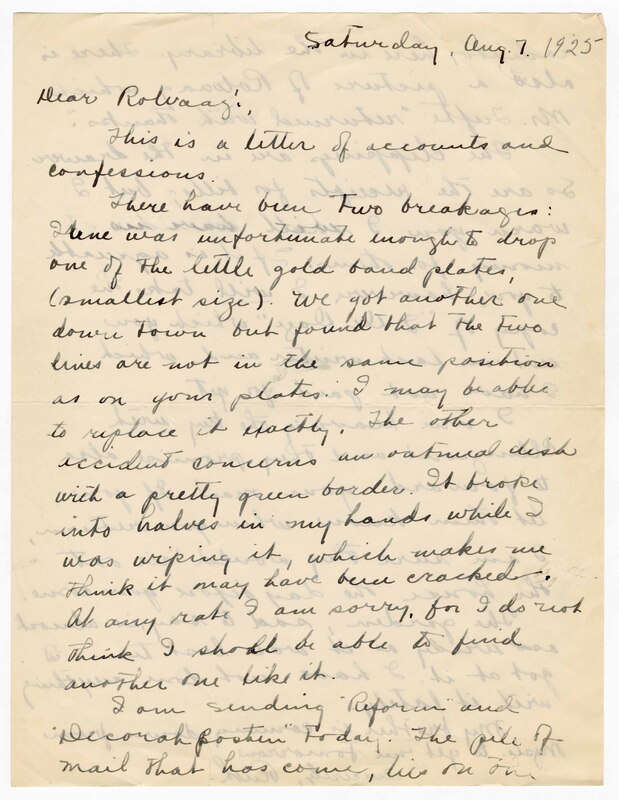 Saturday, Aug. 7. 1925
Dear Rolvaag:,
This is a letter of accounts and
confessions.
There have been two breakages:
Irene was unfortunate enough to drop
one of the little gold band plates,
(smallest size). We got another one
down town but found that the two
lines are not in the same position
as on your plates. I may be able
to replace it exactly. The other
accident concerns an oatmeal dish
with a pretty green border. It broke
into halves in my hands while I
was wiping it, which makes me
think it may have been cracked.
At any rate I am sorry, for I do not
think I shall be able to find
another one like it.
I am sending "Reform" and
"Decorah Posten" today. The pile of
mail that has come, lies on one